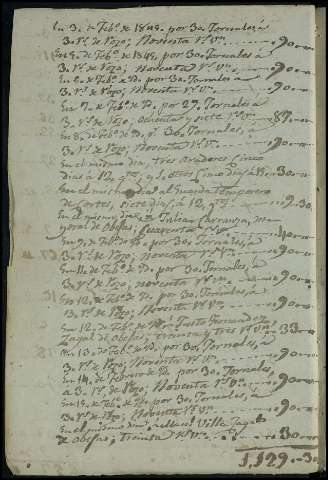 En 3. de Feb.º de 1849. por 30. Jornales, á
3. r.s de Vozo; Noventa r.s v.n 90
En 5. de Feb.º de 1849. por 30. Jornales á
3. r.s de Vozo; Noventa r.s v.n 90
En 6. de Feb.º de Yd. por 30. Jornales á
3. r.s de Vozo; Noventa r.s v.n 90
En 7. de Feb.º de Yd. por 29. Jornales á
3. r.s de Vozo; ochenta y siete r.s v.n 87
En 8. de Feb.º de Yd. p.r 30. Jornales, á
3. r.s de Vozo; Noventa r.s v.n 90
En el mismo dia, tres Aradores Cinco
dias á 12. y los otros Cinco dias á 30
En el mismo dia al Guarda Temporero
de Cortes, siete dias, á 12. 2..30
En el mismo dia, á Julian Carranza, Ma-
yoral de Obejas; Quarenta r.s v.n 40
En 9. de Feb.º de Yd. por 30. Jornales, á
3. r.s de Vozo; noventa r.s v.n 90
En 11. de Feb.º de Yd. por 30. Jornales, á
3. r.s de Vozo; noventa r.s v.n 90
En 10. de Feb.º de Yd. por 30. Jornales, á
3. r.s de Vozo; Noventa r.s v.n 90
En 12. de Feb.º de Yd. á Justo Fernandez
Zagal de obejas; treinta y tres r.s v.n 33
En 13. de Feb.º de Yd. por 30. Jornales, á
3. r.s de Vozo; Noventa r.s v.n 90
En 14. de Febrero de Yd. por 30. Jornales,
á 3. r.s de Vozo; Noventa r.s v.n 90
En 15. de Feb.º de Yd. por 30. Jornales, á
3. r.s de Vozo; Noventa r.s v.n 90
En el mismo dia Villa Zagal
de obejas; treinta r.s v.n 30
1,129..30